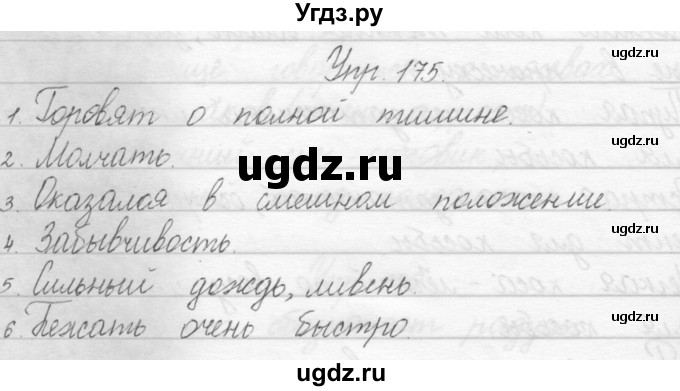 Угдз.ру
ugdz.ru
Упр. 175.
ugdz.ru
1. Горовят о полной тишине.
ugdz.ru
2. Молчать.
ugdz.ru
3. Оказался в смешном положение.
ugdz.ru
4. Забывчивость.
ugdz.ru
5. Сильный дождь, ливень.
ugdz.ru
6. Бежать очень быстро.
ugdz.ru
ugdz.ru